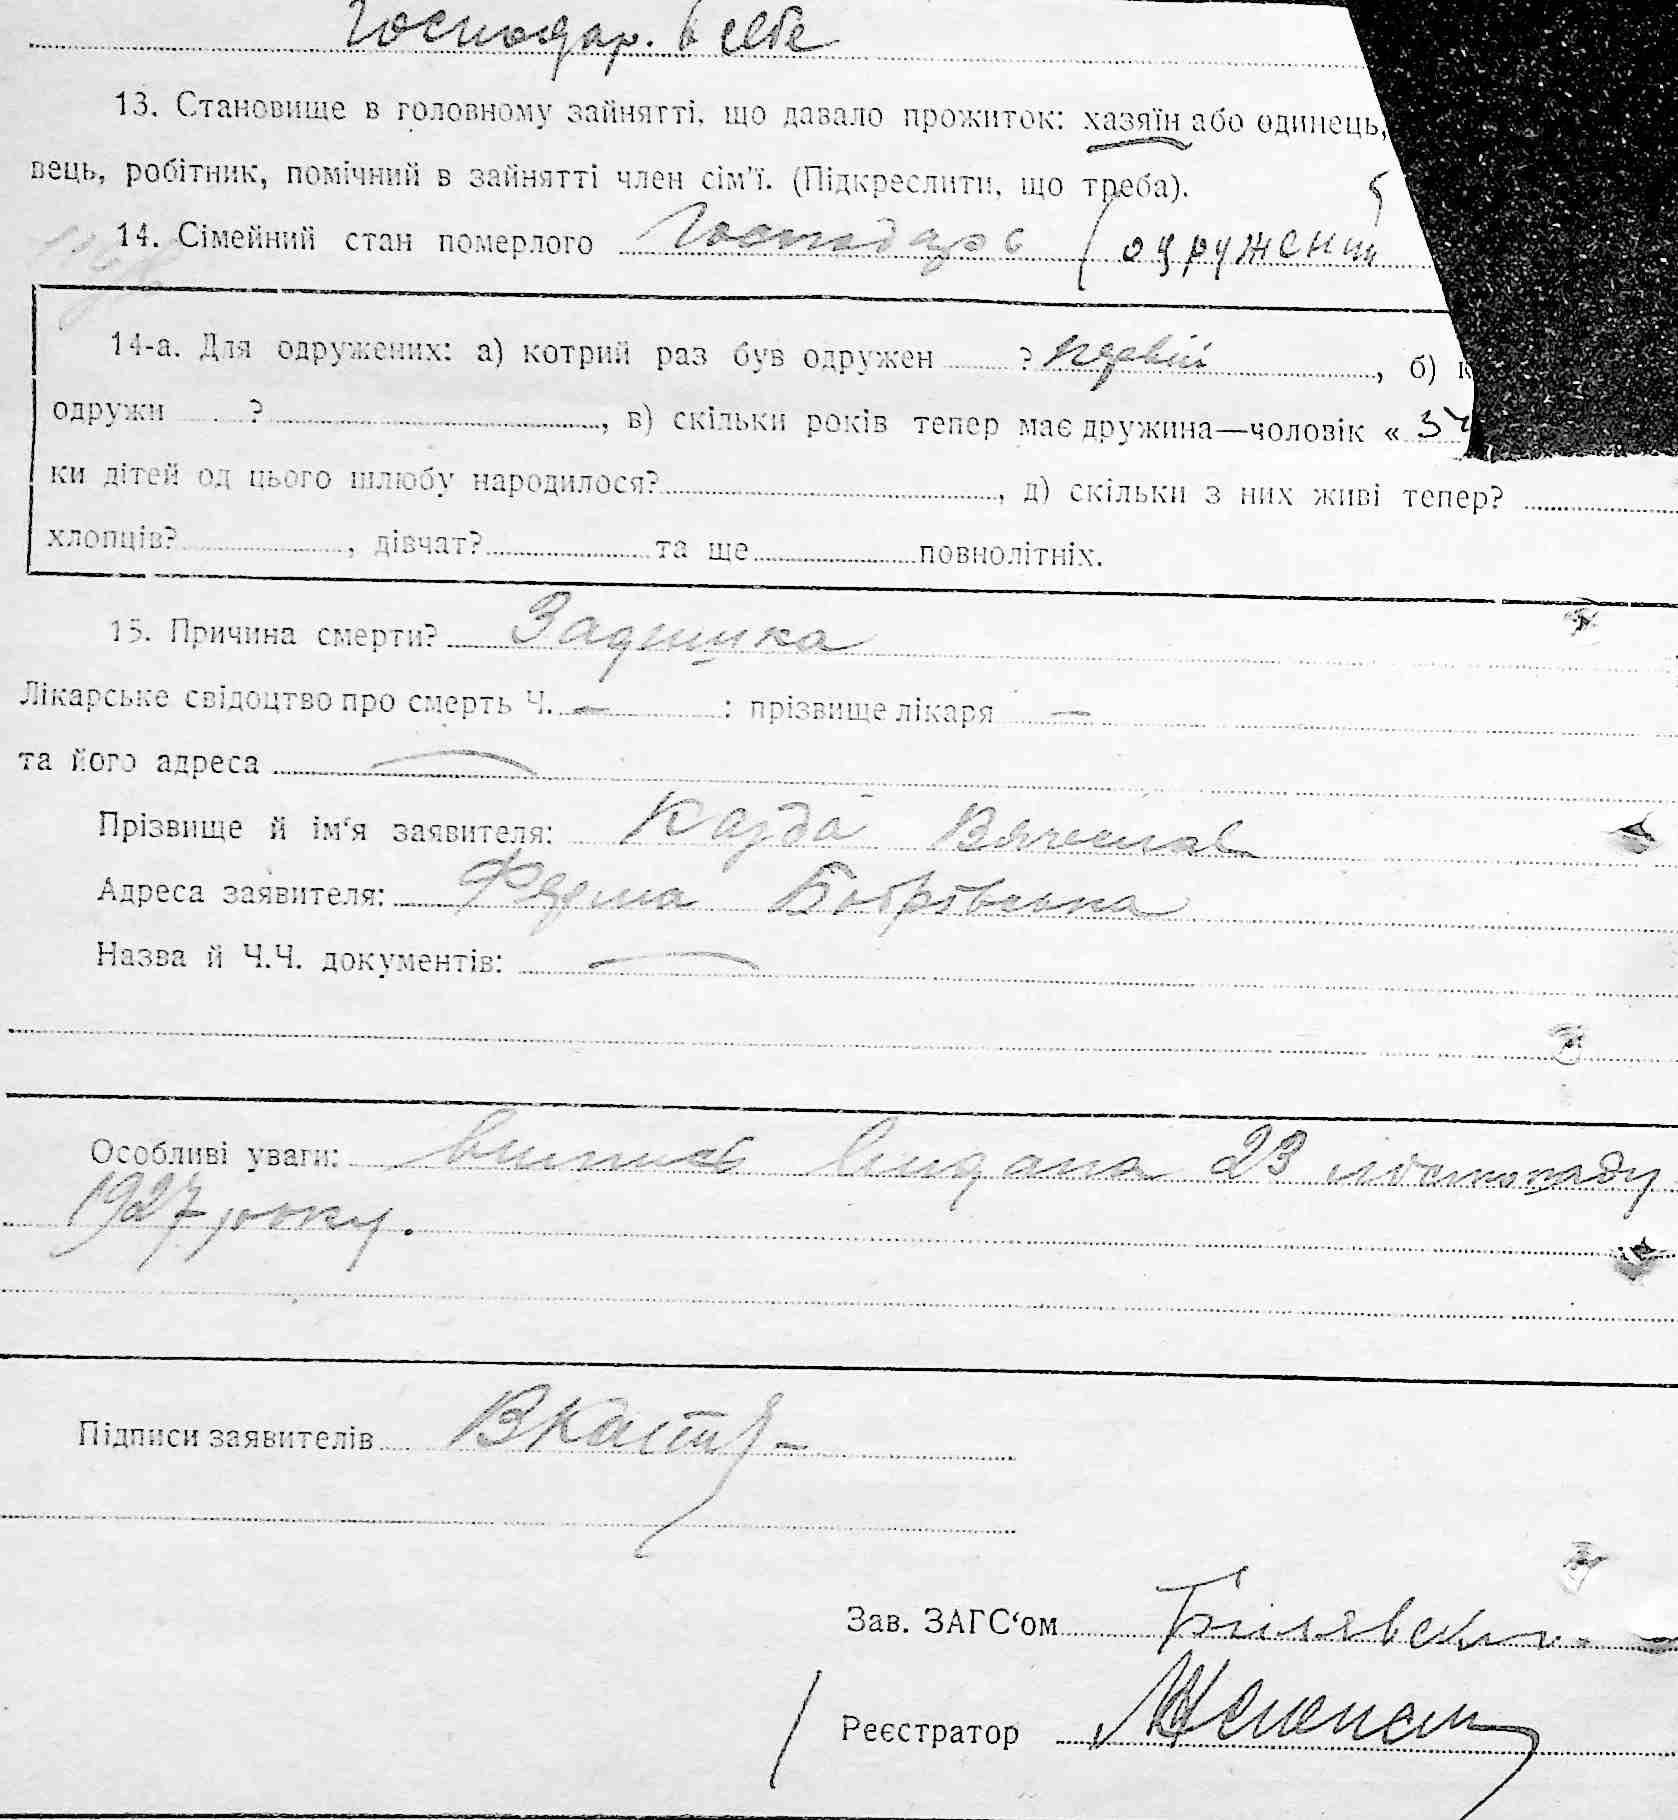 Господар. в себе
13. Становище в головному зайнятті, що давало прожиток: хазяїн або одинець,
вець, робітник, помічний в зайнятті член сім'ї. (Підкреслити, що треба).
14. Сімейний стан померлого Господарь (одружений
14-а. Для одружених: а) котрий раз був одружен ? первій, б)
одружи ?, в) скільки років тепер має дружина—чоловік «
ки дітей од цього шлюбу народилося?, д) скільки з них живі тепер?
хлопців?, дівчат? та ще повнолітніх.
15. Причина смерти? Задишка
Лікарське свідоцтво про смерть Ч. — : прізвище лікаря —
та його адреса —
Прізвище й ім'я заявителя: Вячеслав
Адреса заявителя: Ферма Бобрівська
Назва й Ч.Ч. документів: —
Особливі уваги: випись видана 23 листопаду
1927 року.
Підписи заявителів
Зав. ЗАГС'ом
Реєстратор